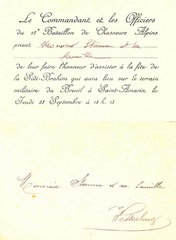 Le Commandant et les Officiers
du 15e Bataillon de Chasseurs Alpins
prient Monsieur Stamm et sa
famille
de leur faire l'honneur d'assister à la fête de
la Sidi-Brahim qui aura lieu sur le terrain
militaire du Breuil à Saint-Amarin, le
Jeudi 25 Septembre à 14 h. 15
Monsieur Stamm et sa famille